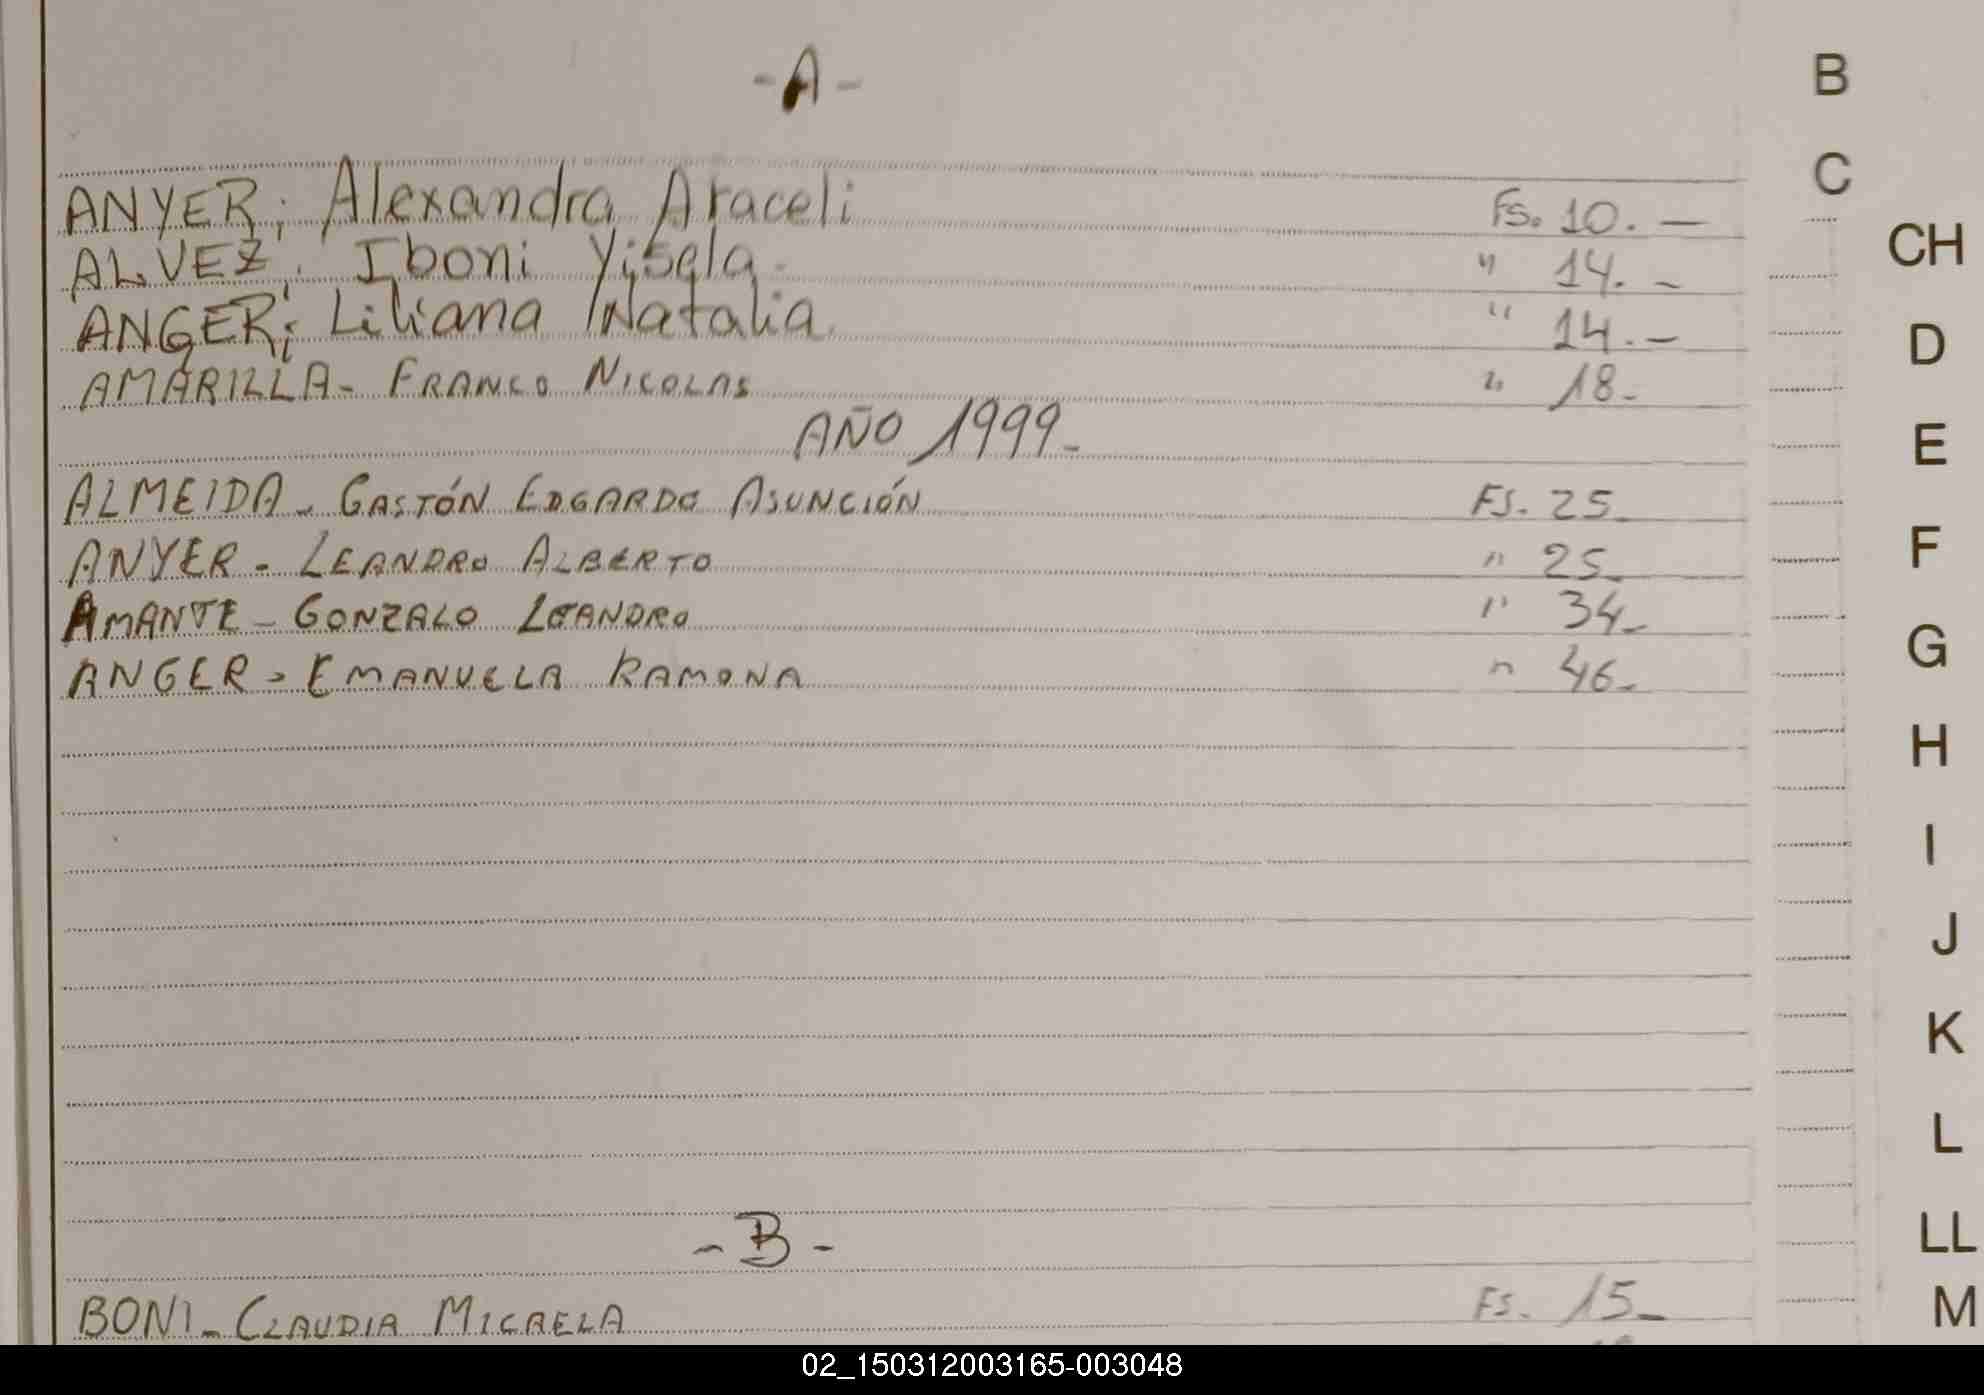 -A-
ANYER; Alexandra Araceli Fs. 10. —
ALVEZ; Iboni Yisela. " 14. -
ANGER; Liliana Natalia " 14. -
AMARILLA- FRANCO NICOLAS " 18-
AÑO 1999-
ALMEIDA- GASTÓN EDGARDO ASUNCIÓN FS. 25-
ANYER- LEANDRO ALBERTO " 25-
AMANTE- GONZALO LEANDRO " 34-
ANGER- EMANUELA RAMONA " 46-
-B-
BONI- CLAUDIA MICAELA FS. 15-
B
C
CH
D
E
F
G
H
I
J
K
L
LL
M
02_150312003165-003048